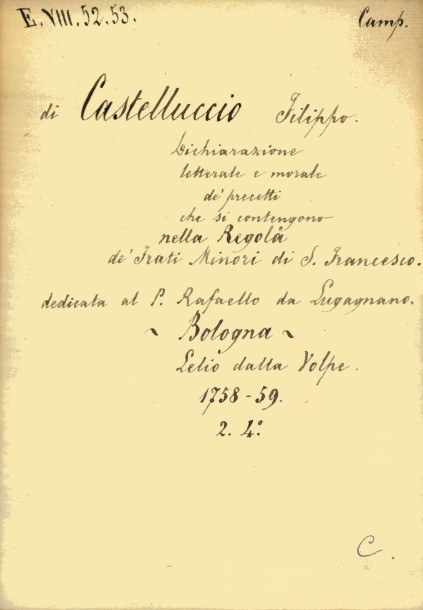 E.VIII.52.53. Camp.
di Castelluccio Filippo.
Dichiarazione
letterale e morale
de' precetti
che si contengono
nella Regola
de' Frati Minori di S. Francesco.
dedicata al P. Rafaello da Lugagnano.
~ Bologna ~
Lelio dalla Volpe.
1758-59.
2. 4.º
C.